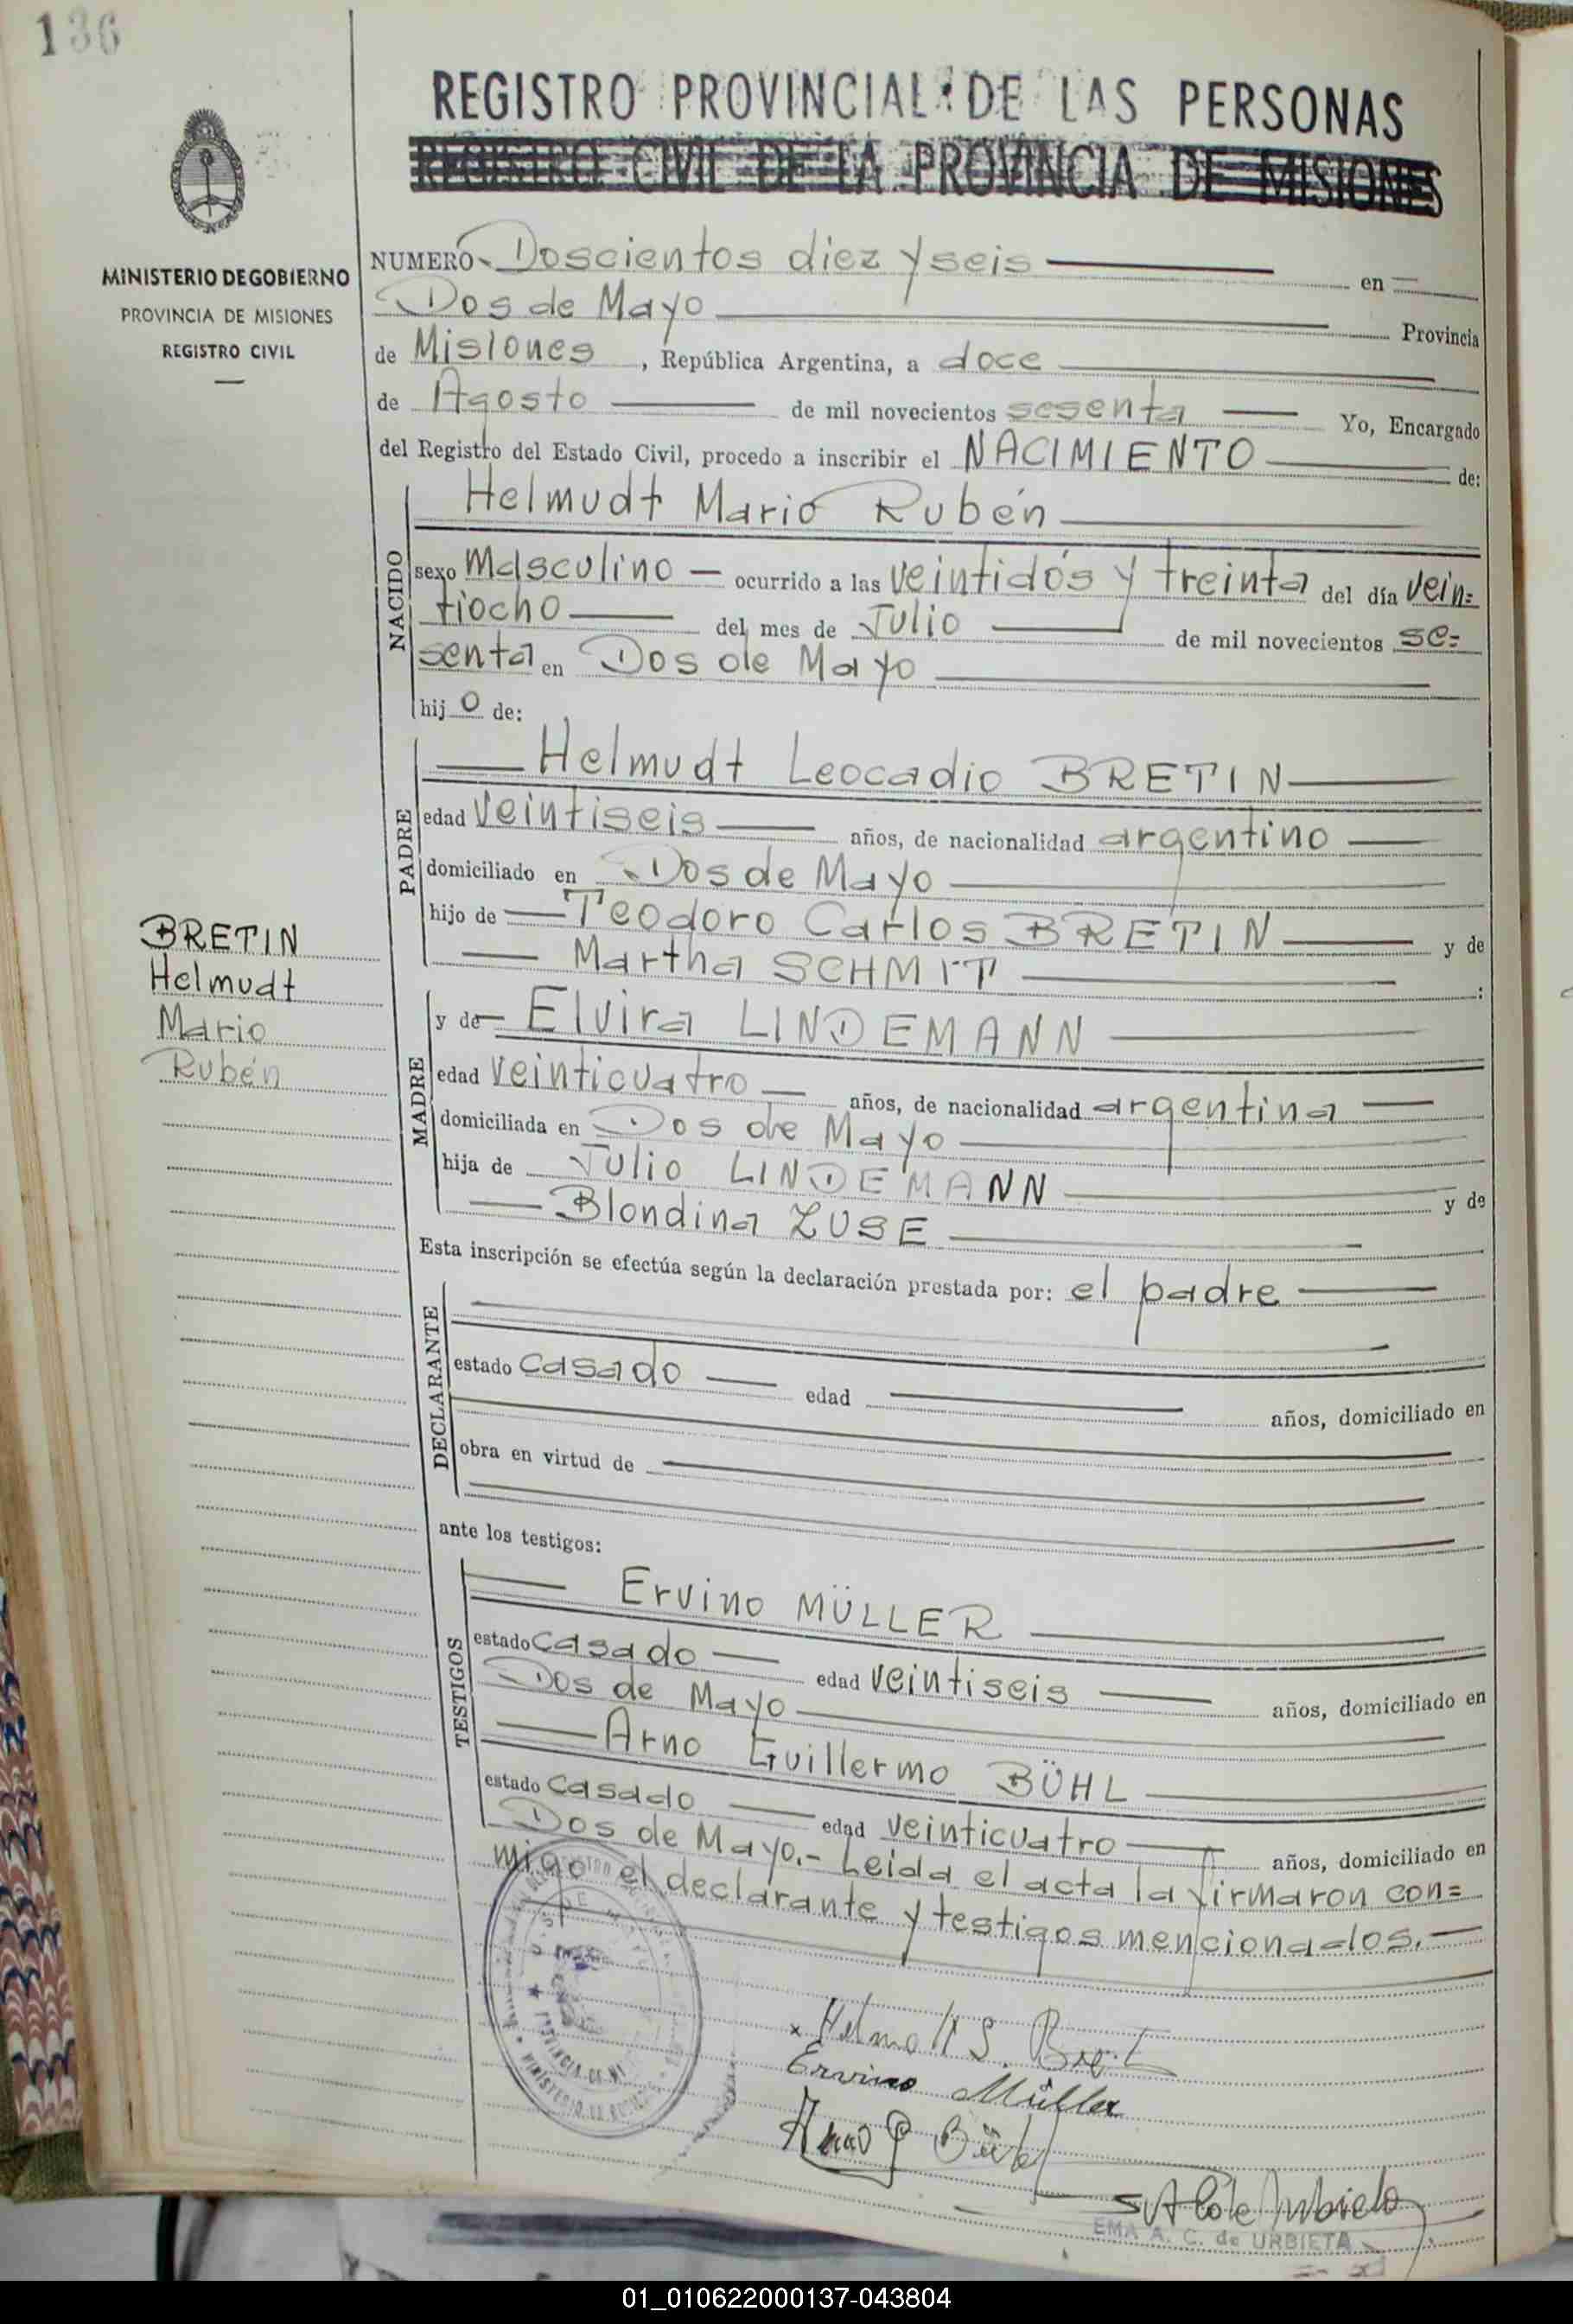 136
REGISTRO PROVINCIAL DE LAS PERSONAS
REGISTRO CIVIL DE LA PROVINCIA DE MISIONES
MINISTERIO DE GOBIERNO
PROVINCIA DE MISIONES
REGISTRO CIVIL
NUMERO Doscientos diez y seis en
Dos de Mayo Provincia
de Misiones, República Argentina, a doce
de Agosto de mil novecientos sesenta Yo, Encargado
del Registro del Estado Civil, procedo a inscribir el NACIMIENTO de:
NACIDO
Helmudt Mario Rubén
sexo Masculino ocurrido a las veintidós y treinta del día vein=
tiocho del mes de Julio de mil novecientos se=
senta en Dos de Mayo
hijo de:
PADRE
Helmudt Leocadio BRETIN
edad veintiseis años, de nacionalidad argentino
domiciliado en Dos de Mayo
hijo de Teodoro Carlos BRETIN y de
Martha SCHMIT :
BRETIN
Helmudt
Mario
Rubén
MADRE
y de Elvira LINDEMANN
edad veinticuatro años, de nacionalidad argentina
domiciliada en Dos de Mayo
hija de Julio LINDEMANN y de
Blondina ZUSE
Esta inscripción se efectúa según la declaración prestada por: el padre
DECLARANTE
estado casado edad años, domiciliado en
obra en virtud de
ante los testigos:
TESTIGOS
Ervino MÜLLER
estado casado edad veintiseis años, domiciliado en
Dos de Mayo
Arno Guillermo BÜHL
estado casado edad veinticuatro años, domiciliado en
Dos de Mayo.- Leida el acta la firmaron con=
migo el declarante y testigos mencionados.-
Ervino Müller
Arno G Bühl
EMA A. C. de URBIETA
01_010622000137-043804